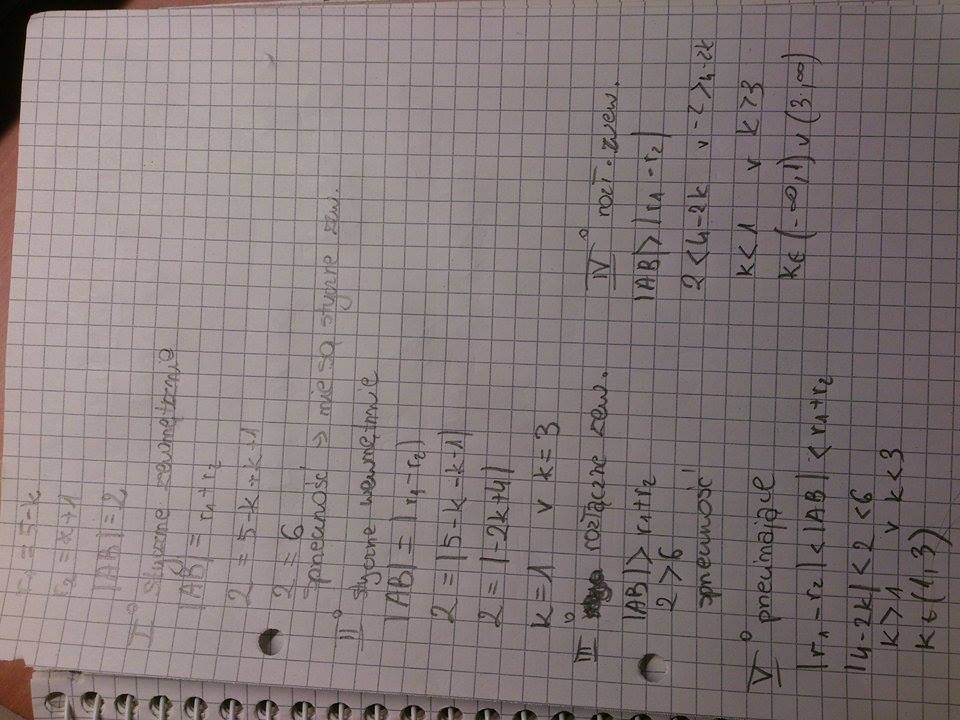 r₁ = 5-k
r₂ = k+1
|AB| = 2
I° styczne zewnętrznie
|AB| = r₁+r₂
2 = 5-k+k+1
2 = 6
sprzeczność => nie są styczne zew.
II° styczne wewnętrznie
|AB| = |r₁-r₂|
2 = |5-k-k-1|
2 = |-2k+4|
k=1 v k=3
III° rozłączne zew.
|AB| > r₁+r₂
2>6
sprzeczność
IV° rozł. wew.
|AB| > |r₁-r₂|
2 < 4-2k v -2 > 4-2k
k<1 v k>3
k∈(-∞,1)∪(3,∞)
V° przecinające
|r₁-r₂| < |AB| < r₁+r₂
|4-2k| < 2 < 6
k>1 v k<3
k∈(1,3)